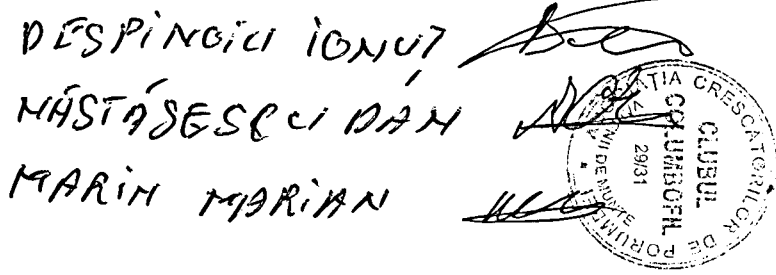 DESPINOIU IONUȚ
NĂSTĂSESCU DAN
MARIN MARIAN
CRESCATORILOR DE PORUMBEI
CLUBUL
COLUMBOFIL
29/31